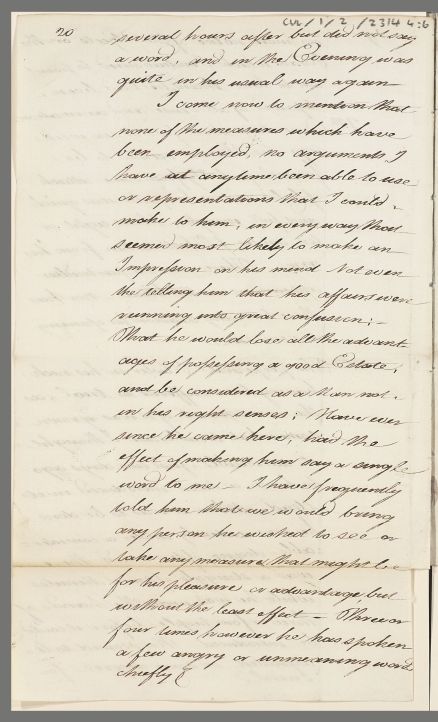 CVL/1/2/2314 4:6
20
several hours after but did not say
a word, and in the Evening was
quite in his usual way again
I come now to mention that
none of the measures which have
been employed, no arguments I
have at any time been able to use
or representations that I could
make to him, in every way that
seemed most likely to make an
Impression on his mind Not even
the telling him that his affairs were
running into great confusion; -
That he would lose all the advant
ages of possessing a good Estate,
and be considered as a Man not
in his right senses; Have ever
since he came here, had the
effect of making him say a single
word to me - I have frequently
told him that we would bring
any person he wished to see or
take any measure that might be
for his pleasure or advantage but
without the least effect - Three or
four times however he has spoken
a few angry or unmeaning words
chiefly